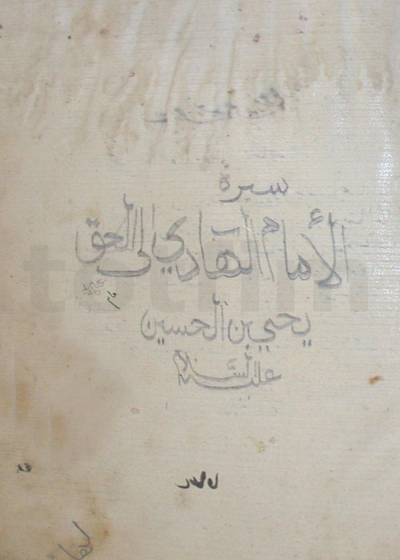 سيرة
الامام الهادي الى الحق
يحيى بن الحسين
عليه السلام